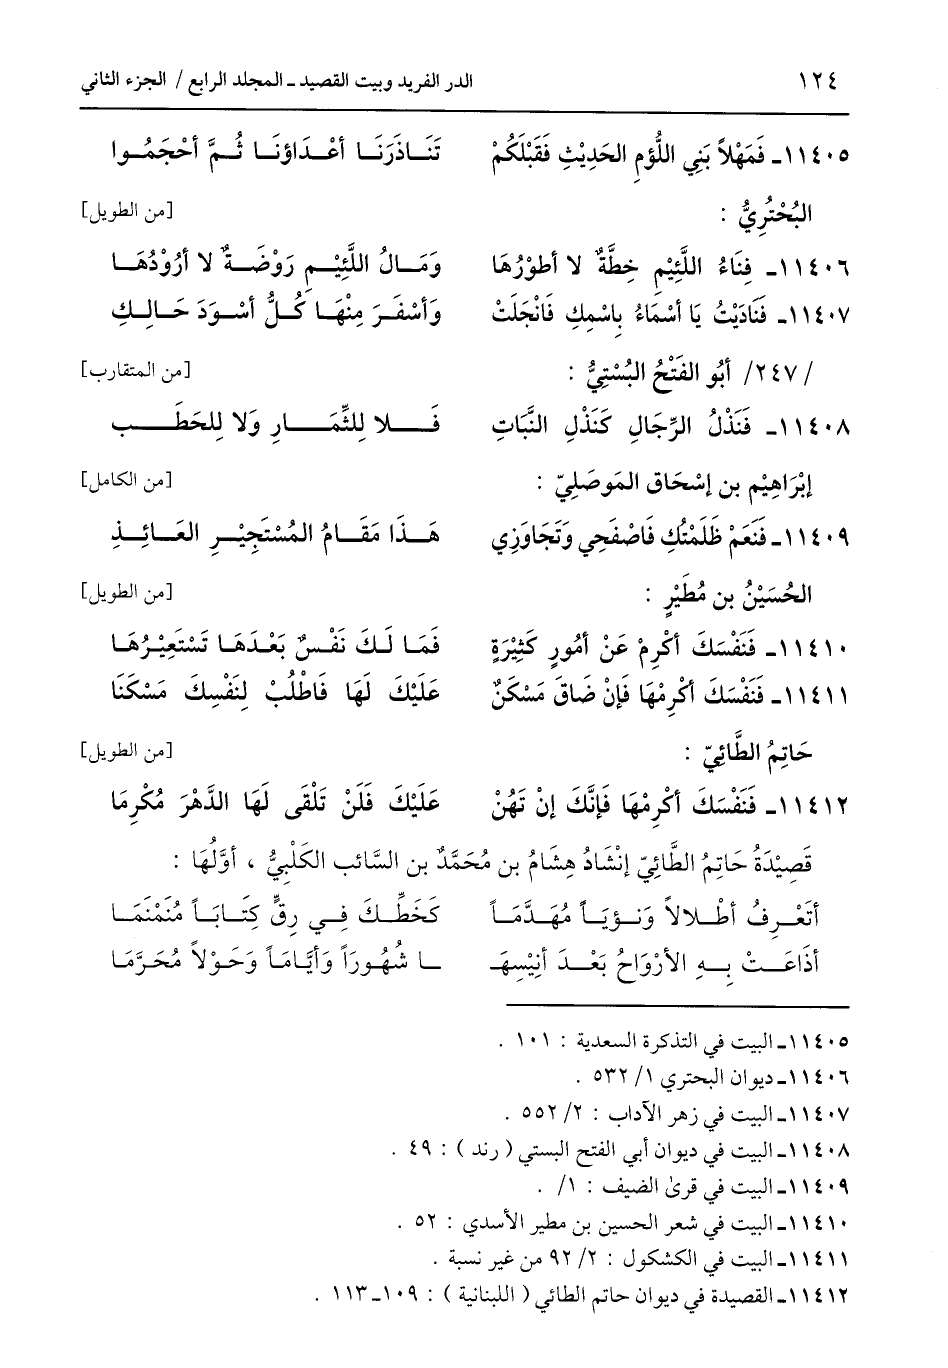 ١٢٤ الدر الفريد وبيت القصيد ـ المجلد الرابع / الجزء الثاني
١١٤٠٥ـ فَمَهْلاً بَنِي اللُّؤمِ الحَدِيْثِ فَقَبْلَكُمْ تَنَـاذَرَنَـا أعْـدَاؤنَـا ثُـمَّ أحْجَمُـوا
البُحْتُرِيُّ : [من الطويل]
١١٤٠٦ـ فِنَاءُ اللَّئِيْمِ خِطَّةٌ لا أطوْرُهَا وَمَـالُ اللَّئِيْـمِ رَوْضَـةٌ لا أرُوْدُهَـا
١١٤٠٧ـ فَنَادَيْتُ يَا أسْمَاءُ بِاسْمِكِ فَانْجَلَتْ وَأسْفَـرَ مِنْهَـا كُـلُّ أسْـوَدَ حَـالِـكِ
/ ٢٤٧/ أبُو الفَتْحُ البُسْتِيُّ : [من المتقارب]
١١٤٠٨ـ فَنَذْلُ الرِّجَالِ كَنَذْلِ النَّبَاتِ فَـــلا لِلثِّمَـــارِ وَلا لِلحَطَـــبِ
إبْرَاهِيْم بن إسْحَاق المَوصَلِيّ : [من الكامل]
١١٤٠٩ـ فَنَعَمْ ظَلَمْتُكِ فَاصْفَحِي وَتَجَاوَزِي هَـذَا مَقَـامُ المُسْتَجِيْـرِ العَـائِـذِ
الحُسَيْنُ بن مُطَيْرٍ : [من الطويل]
١١٤١٠ـ فَنَفْسَكَ أكْرِمْ عَنْ أمُورٍ كَثِيْرَةٍ فَمَا لَـكَ نَفْـسٌ بَعْـدَهَـا تَسْتَعِيْـرُهَـا
١١٤١١ـ فَنَفْسَكَ أكْرِمْهَا فَإنْ ضَاقَ مَسْكَنٌ عَلَيْكَ لَهَا فَاطْلُبْ لِنَفْسِكَ مَسْكَنَا
حَاتِمُ الطَّائِيّ : [من الطويل]
١١٤١٢ـ فَنَفْسَكَ أكْرِمْهَا فَإنَّكَ إنْ تَهُنْ عَلَيْكَ فَلَنْ تَلْقَى لَهَا الدَّهْرَ مُكْرِمَا
قَصِيْدَةُ حَاتِمُ الطَّائِيّ إنْشَادُ هِشَامُ بن مُحَمَّدٌ بن السَّائب الكَلْبِيُّ ، أوَّلُهَا :
أتَعْـرِفُ أطْـلالاً وَنـؤيَـاً مُهَـدَّمَـاً كَخَطِّـكَ فِـي رِقٍّ كِتَـابَـاً مُنَمْنَمَـا
أذَاعَـتْ بِـهِ الأرْوَاحُ بَعْـدَ أنِيْسِهَـ ـا شُهُـورَاً وَأيَّـامَـاً وَحَـوْلاً مُحَـرَّمَـا
١١٤٠٥ـ البيت في التذكرة السعدية : ١٠١ .
١١٤٠٦ـ ديوان البحتري ١/ ٥٣٢ .
١١٤٠٧ـ البيت في زهر الآداب : ٢/ ٥٥٢ .
١١٤٠٨ـ البيت في ديوان أبي الفتح البستي ( رند ) : ٤٩ .
١١٤٠٩ـ البيت في قرىٰ الضيف : ١/ .
١١٤١٠ـ البيت في شعر الحسين بن مطير الأسدي : ٥٢ .
١١٤١١ـ البيت في الكشكول : ٢/ ٩٢ من غير نسبة .
١١٤١٢ـ القصيدة في ديوان حاتم الطائي ( اللبنانية ) : ١٠٩ـ١١٣ .